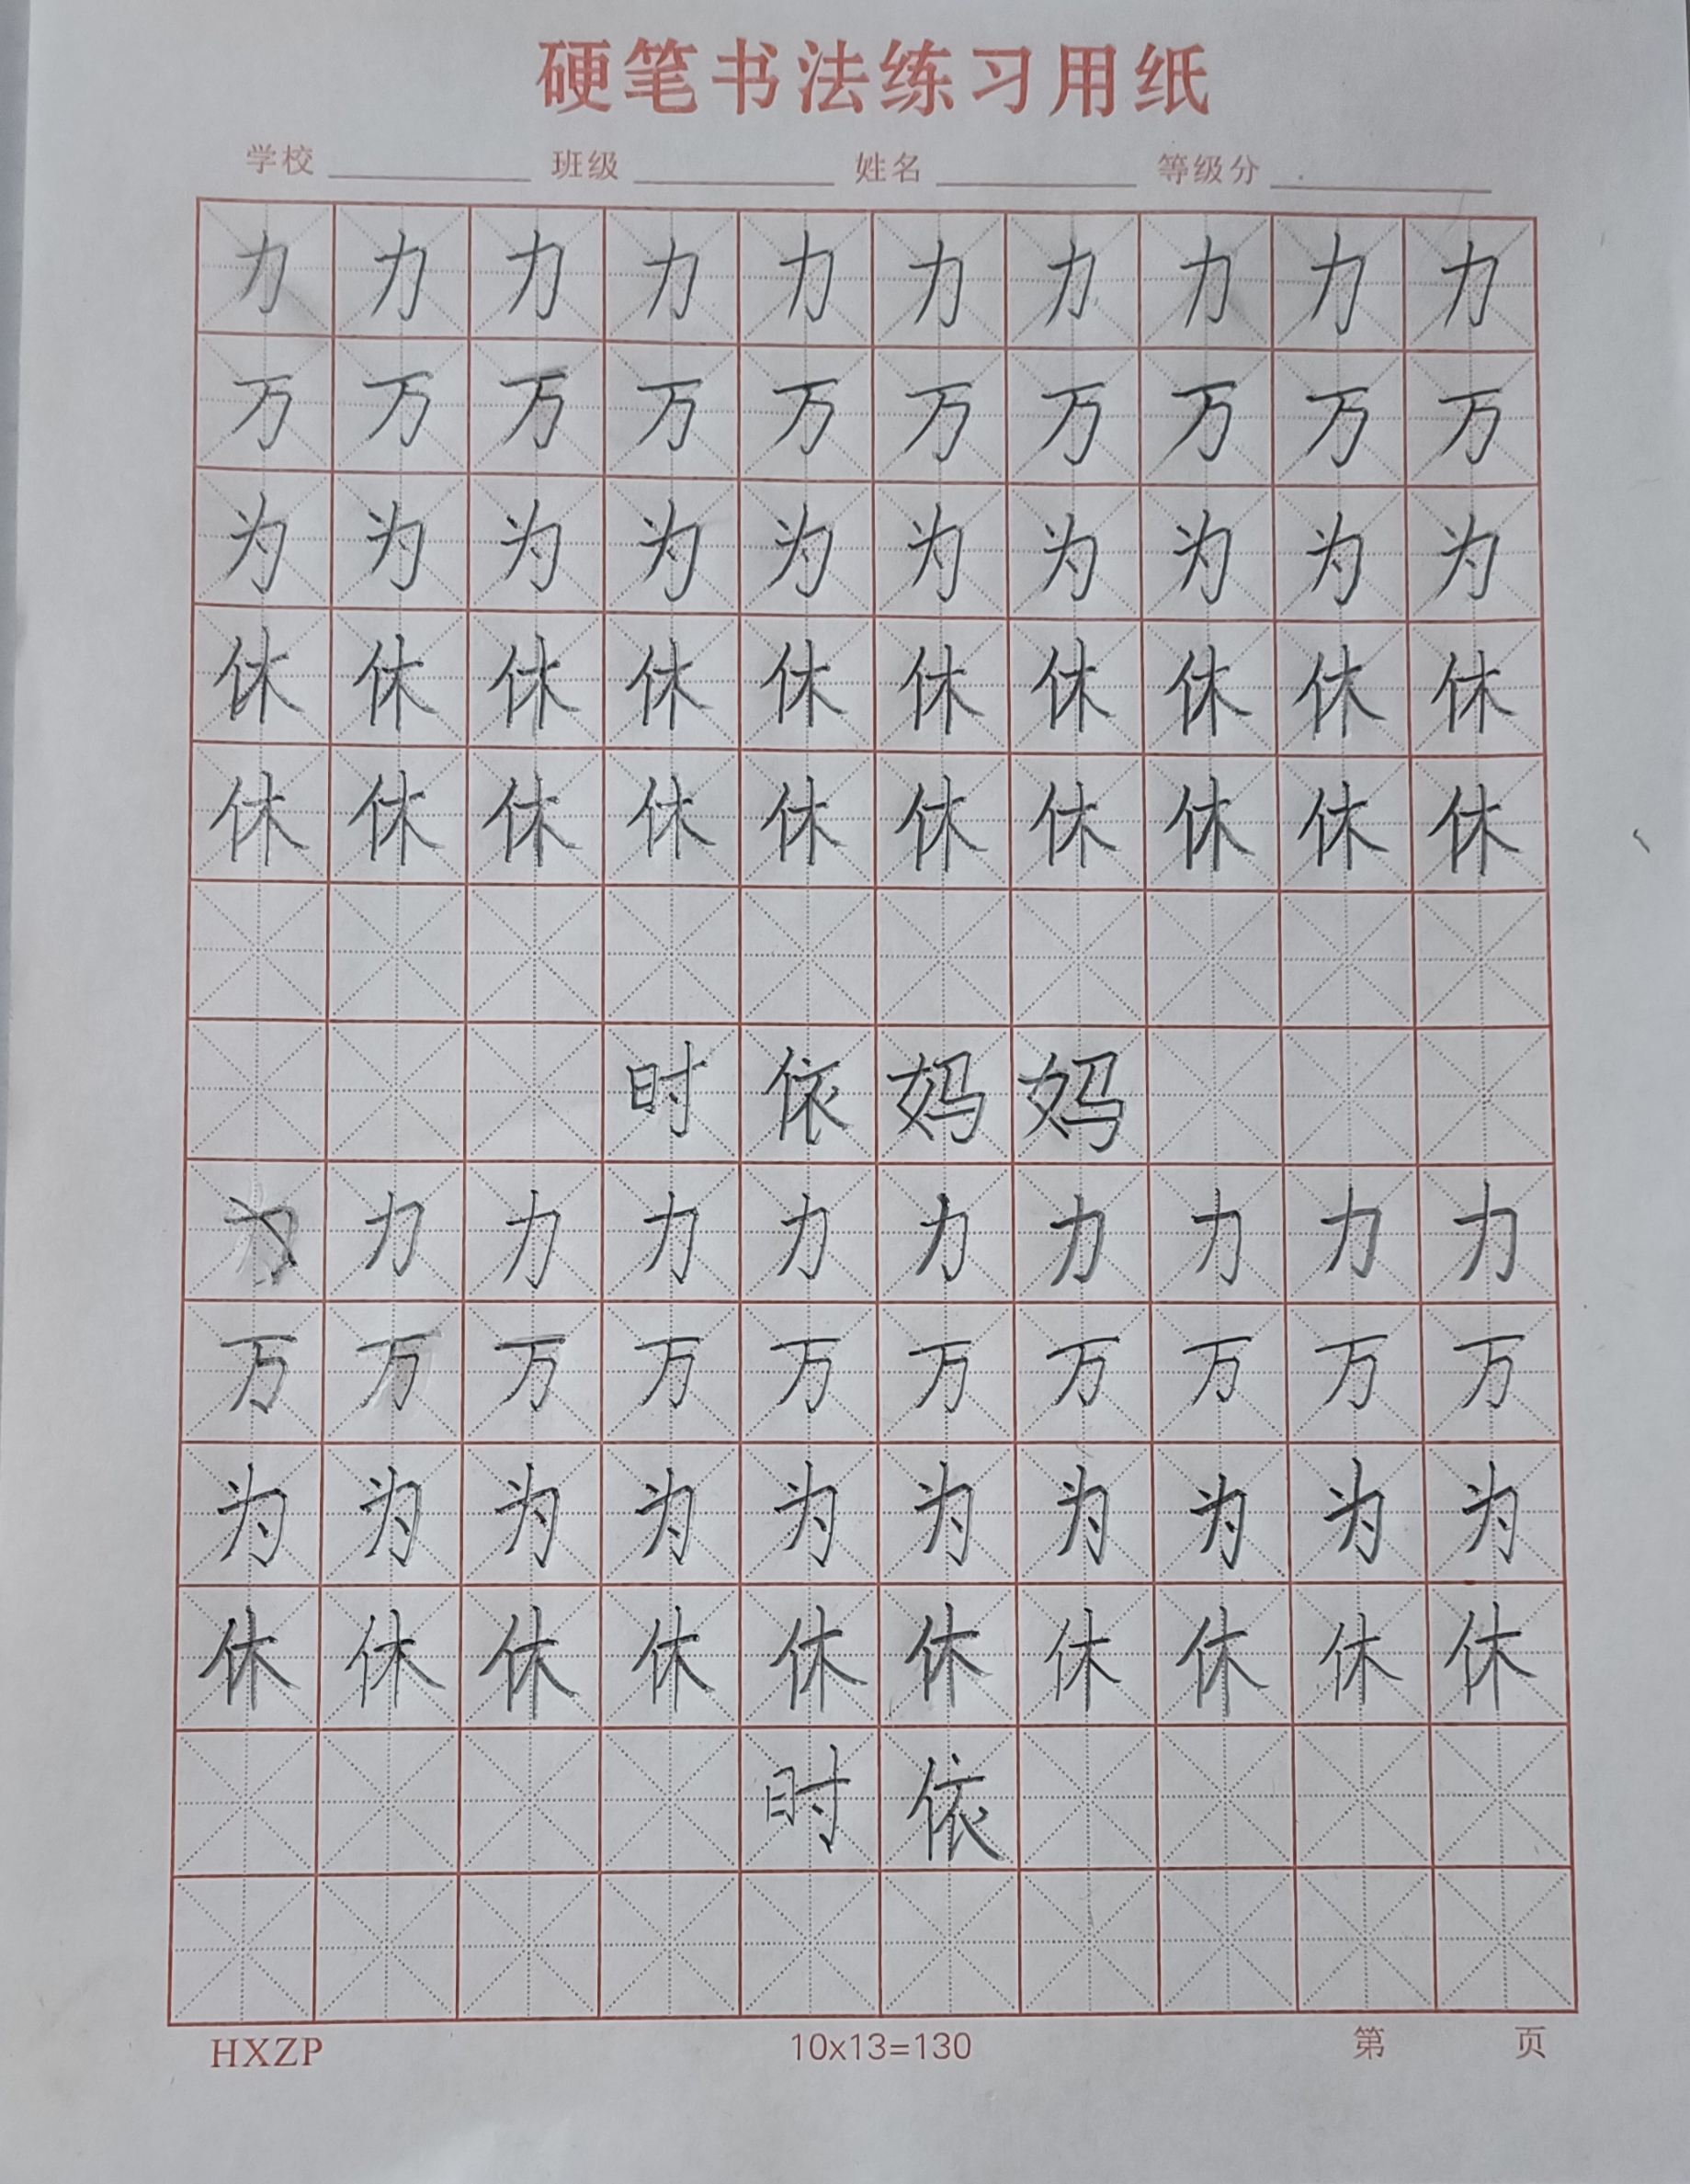 硬笔书法练习用纸
学校 班级 姓名 等级分
力力力力力力力力力力
万万万万万万万万万万
为为为为为为为为为为
休休休休休休休休休休
休休休休休休休休休休
时依妈妈
力力力力力力力力力力
万万万万万万万万万万
为为为为为为为为为为
休休休休休休休休休休
时依
HXZP 10x13=130 第 页